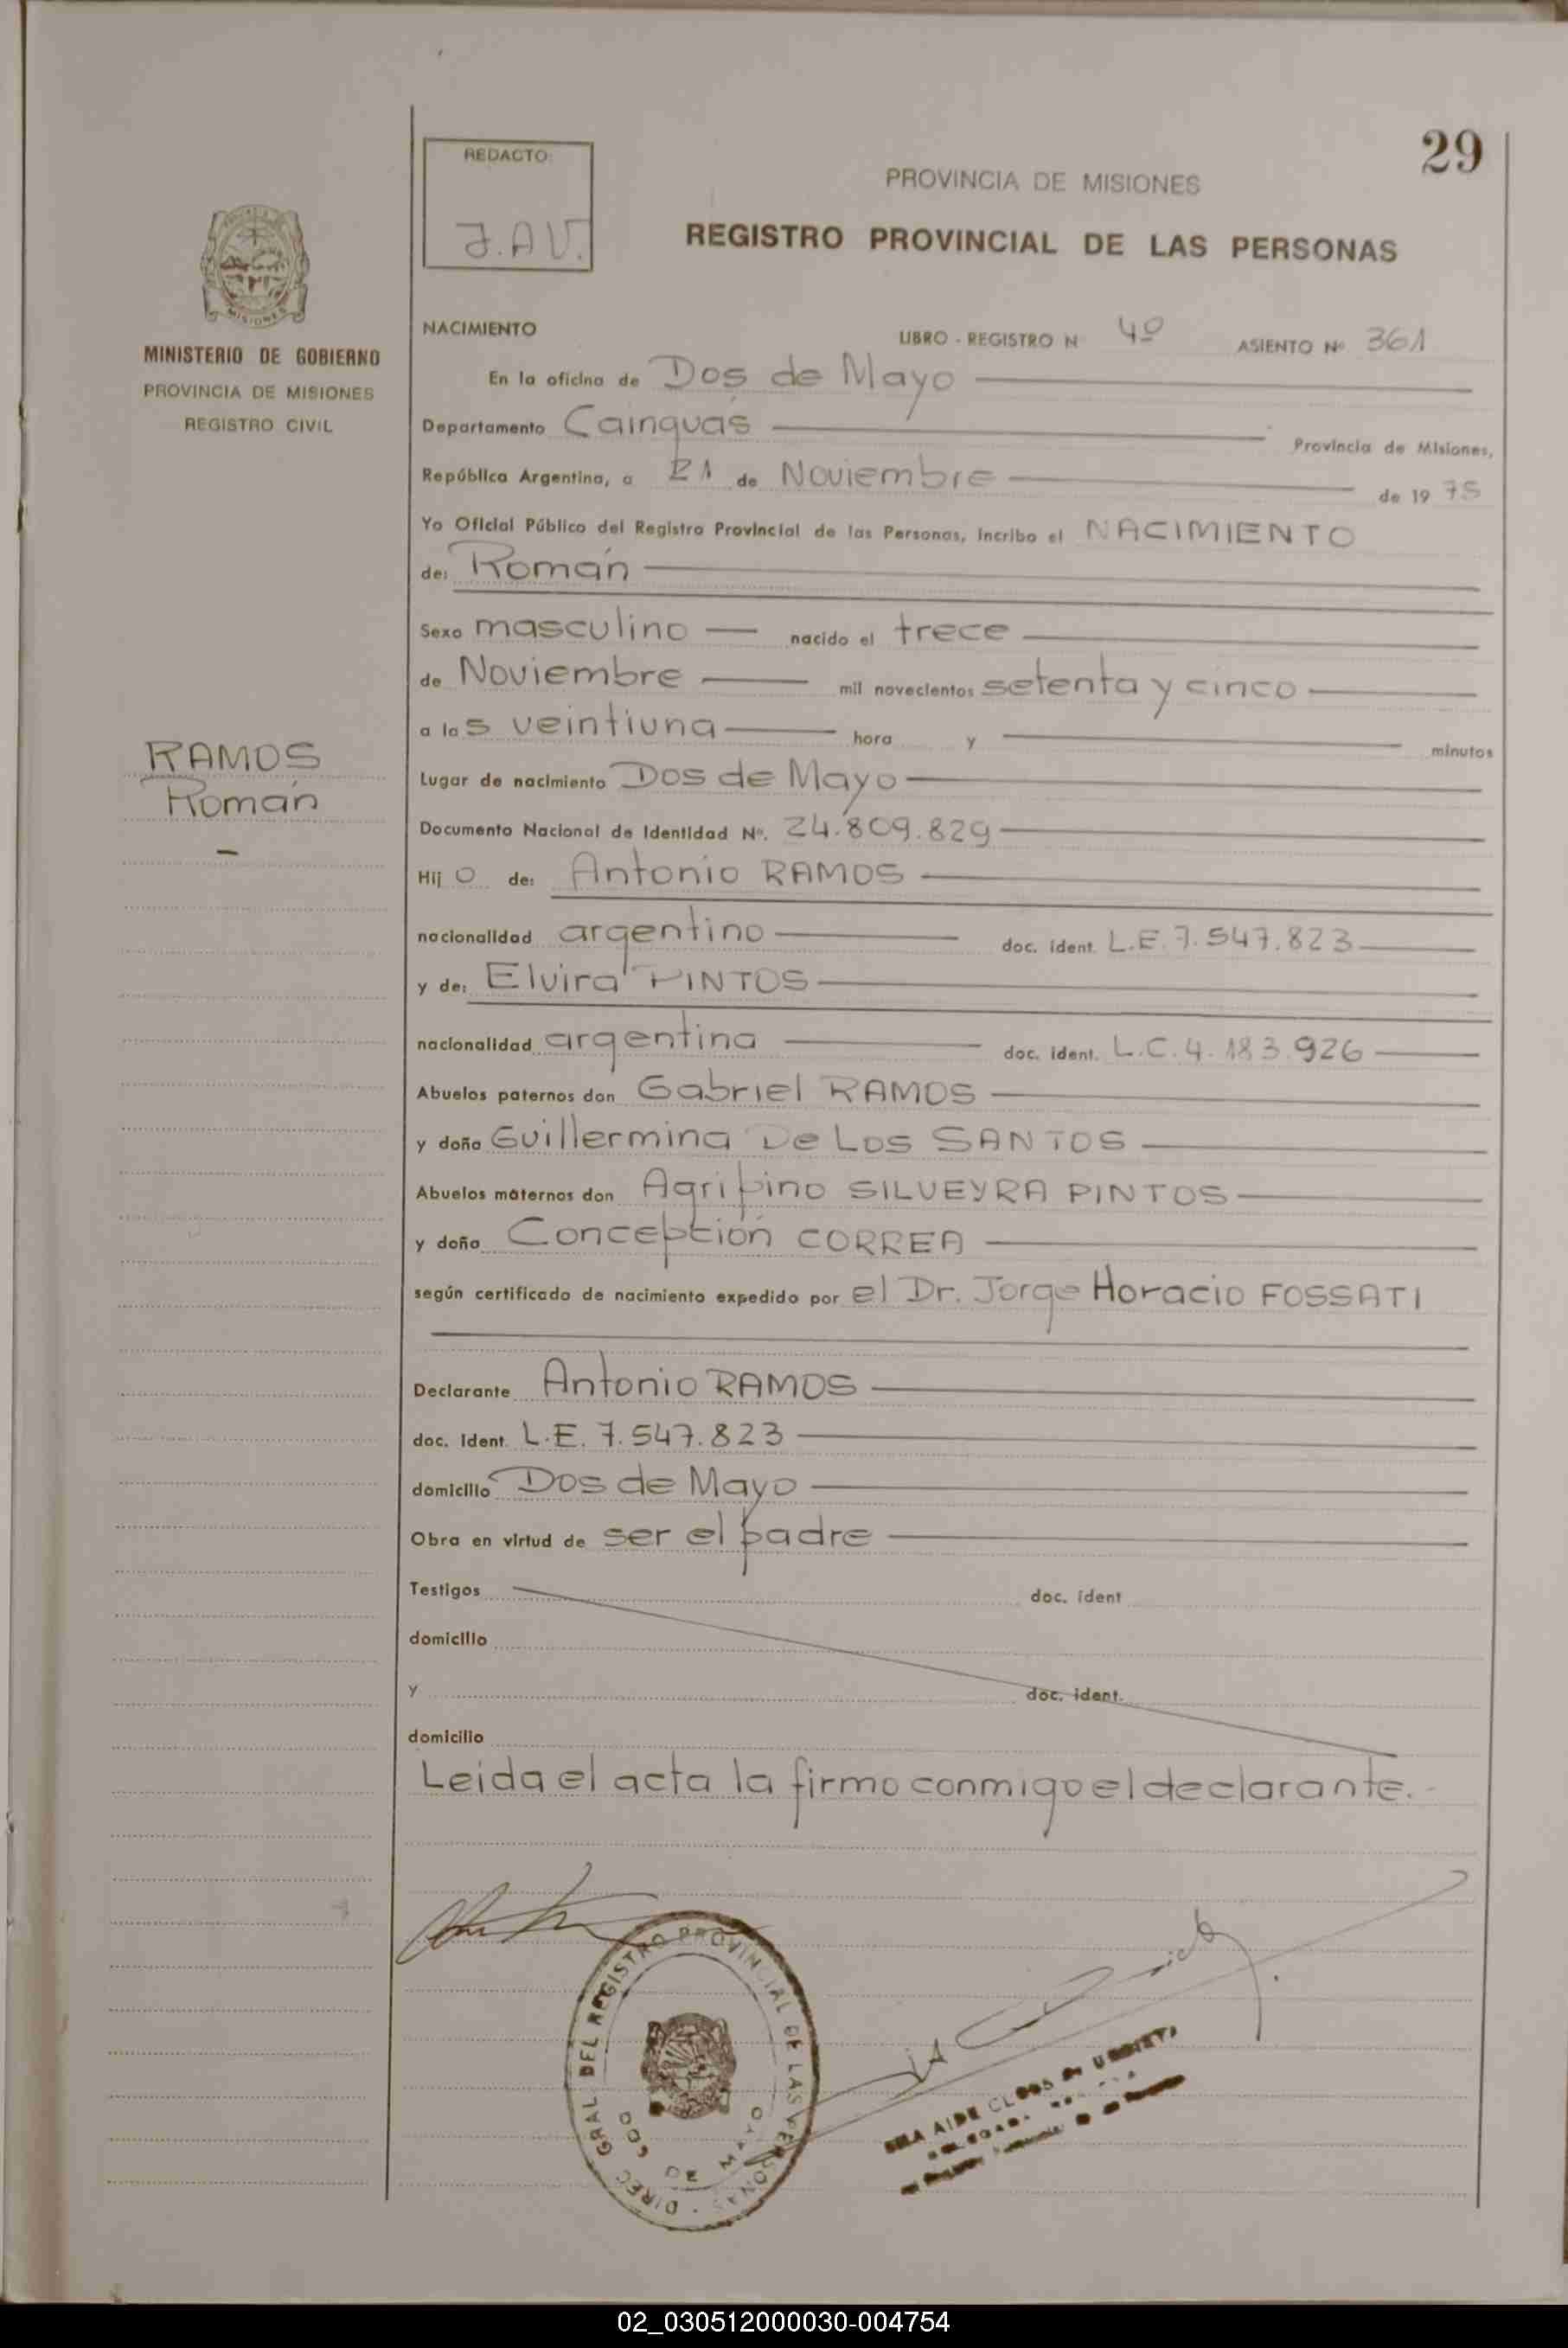 29
REDACTO:
J.A.V.
PROVINCIA DE MISIONES
REGISTRO PROVINCIAL DE LAS PERSONAS
MISIONES
MINISTERIO DE GOBIERNO
PROVINCIA DE MISIONES
REGISTRO CIVIL
RAMOS
Román
NACIMIENTO LIBRO - REGISTRO N 4º ASIENTO Nº 361
En la oficina de Dos de Mayo
Departamento Cainguás Provincia de Misiones,
República Argentina, a 21 de Noviembre de 1975
Yo Oficial Público del Registro Provincial de las Personas, incribo el NACIMIENTO
de: Román
Sexo masculino nacido el trece
de Noviembre mil novecientos setenta y cinco
a las veintiuna hora y minutos
Lugar de nacimiento Dos de Mayo
Documento Nacional de Identidad Nº. 24.809.829
Hijo de: Antonio RAMOS
nacionalidad argentino doc. ident. L.E. 7.547.823
y de: Elvira PINTOS
nacionalidad argentina doc. ident. L.C. 4.183.926
Abuelos paternos don Gabriel RAMOS
y doña Guillermina De Los SANTOS
Abuelos maternos don Agripino SILVEYRA PINTOS
y doña Concepción CORREA
según certificado de nacimiento expedido por el Dr. Jorge Horacio FOSSATI
Declarante Antonio RAMOS
doc. Ident. L.E. 7.547.823
domicilio Dos de Mayo
Obra en virtud de ser el padre
Testigos doc. ident
domicilio
y doc. ident.
domicilio
Leida el acta la firmo conmigo el declarante.
DIREC. GRAL DEL REGISTRO PROVINCIAL DE LAS PERSONAS
DOS DE MAYO
AIDE
02_030512000030-004754